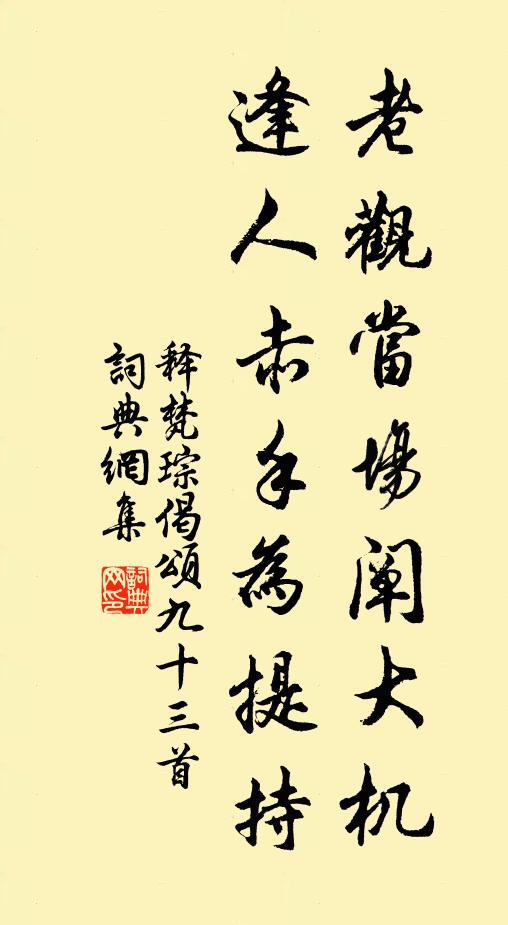 老觀當場阐大机
逢人赤手為提持
释梵琮偈頌九十三首
詞典網集
詞典网印